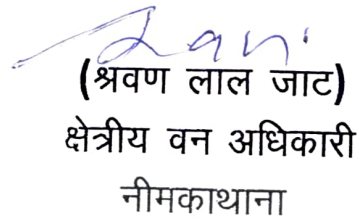 (श्रवण लाल जाट)
क्षेत्रीय वन अधिकारी
नीमकाथाना